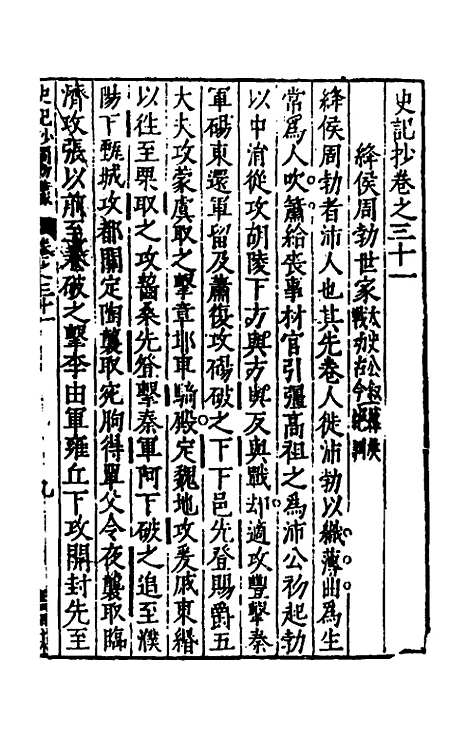 史記抄卷之三十一
絳侯周勃世家
太史公叙絳侯
戰功古今絶調
絳侯周勃者沛人也其先卷人徙沛勃以織薄曲爲生
常爲人吹簫給喪事材官引彊高祖之爲沛公初起勃
以中涓從攻胡陵下方與方與反與戰却適攻豐擊秦
軍碭東還軍留及蕭復攻碭破之下下邑先登賜爵五
大夫攻蒙虞取之擊章邯車騎殿定魏地攻爰戚東緡
以徃至栗取之攻齧桑先登擊秦軍阿下破之追至濮
陽下甄城攻都關定陶襲取宛朐得單父令夜襲取臨
濟攻張以前至卷破之擊李由軍雍丘下攻開封先至
史記抄 卷之三十一